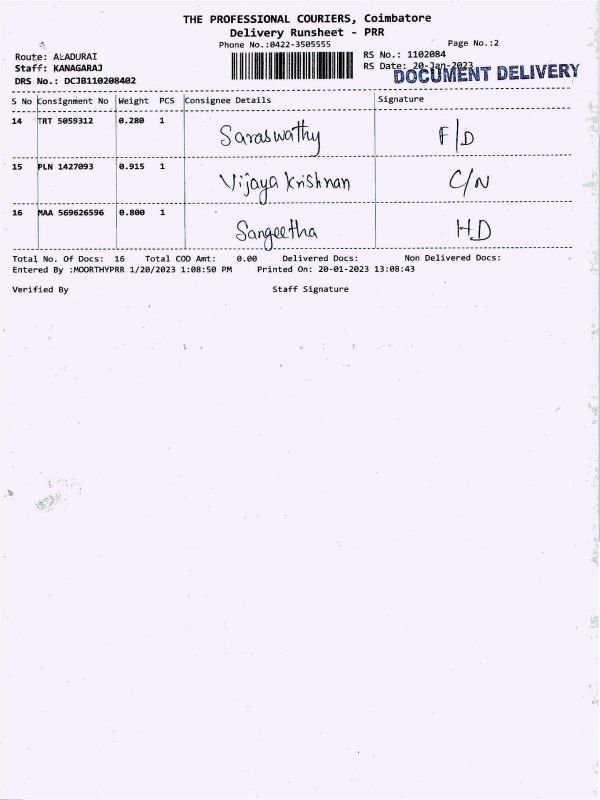 THE PROFESSIONAL COURIERS, Coimbatore
Delivery Runsheet - PRR
Phone No.:0422-3505555
Page No.:2
Route: ALADURAI
RS No.: 1102084
Staff: KANAGARAJ
RS Date: 20-Jan-2023
DOCUMENT DELIVERY
DRS No.: DCJB110208402
S No Consignment No Weight PCS Consignee Details Signature
14 TRT 5059312 0.280 1 Saraswathy F/D
15 PLN 1427093 0.915 1 Vijaya Krishnan C/N
16 MAA 569626596 0.800 1 Sangeetha HD
Total No. Of Docs: 16 Total COD Amt: 0.00 Delivered Docs: Non Delivered Docs:
Entered By :MOORTHYPRR 1/20/2023 1:08:50 PM Printed On: 20-01-2023 13:08:43
Verified By Staff Signature